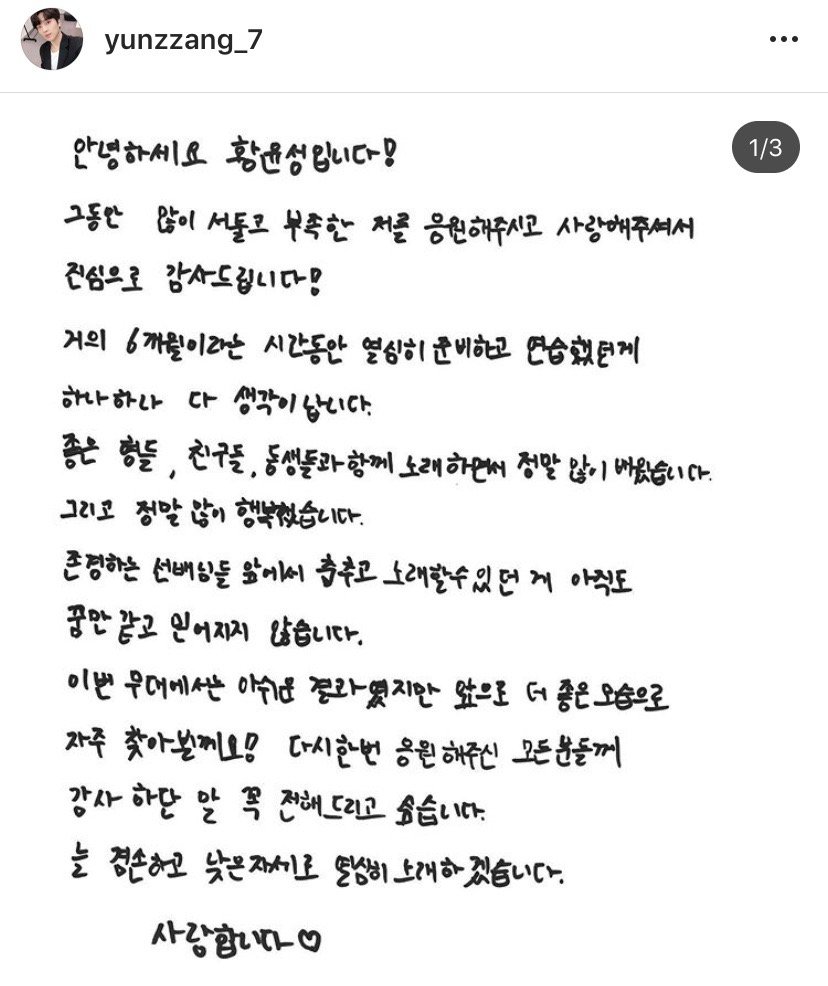 yunzzang_7
1/3
안녕하세요 황윤성입니다!
그동안 많이 서툴고 부족한 저를 응원해주시고 사랑해주셔서
진심으로 감사드립니다!
거의 6개월이라는 시간동안 열심히 준비하고 연습했던게
하나하나 다 생각이 납니다.
좋은 형들, 친구들, 동생들과 함께 노래하면서 정말 많이 배웠습니다.
그리고 정말 많이 행복했습니다.
존경하는 선배님들 앞에서 춤추고 노래할수 있던 게 아직도
꿈만 같고 믿어지지 않습니다.
이번 무대에서는 아쉬운 결과였지만 앞으로 더 좋은 모습으로
자주 찾아뵐께요! 다시한번 응원해주신 모든분들께
감사 하단 말 꼭 전해드리고 싶습니다.
늘 겸손하고 낮은자세로 열심히 노래하겠습니다.
사랑합니다♡